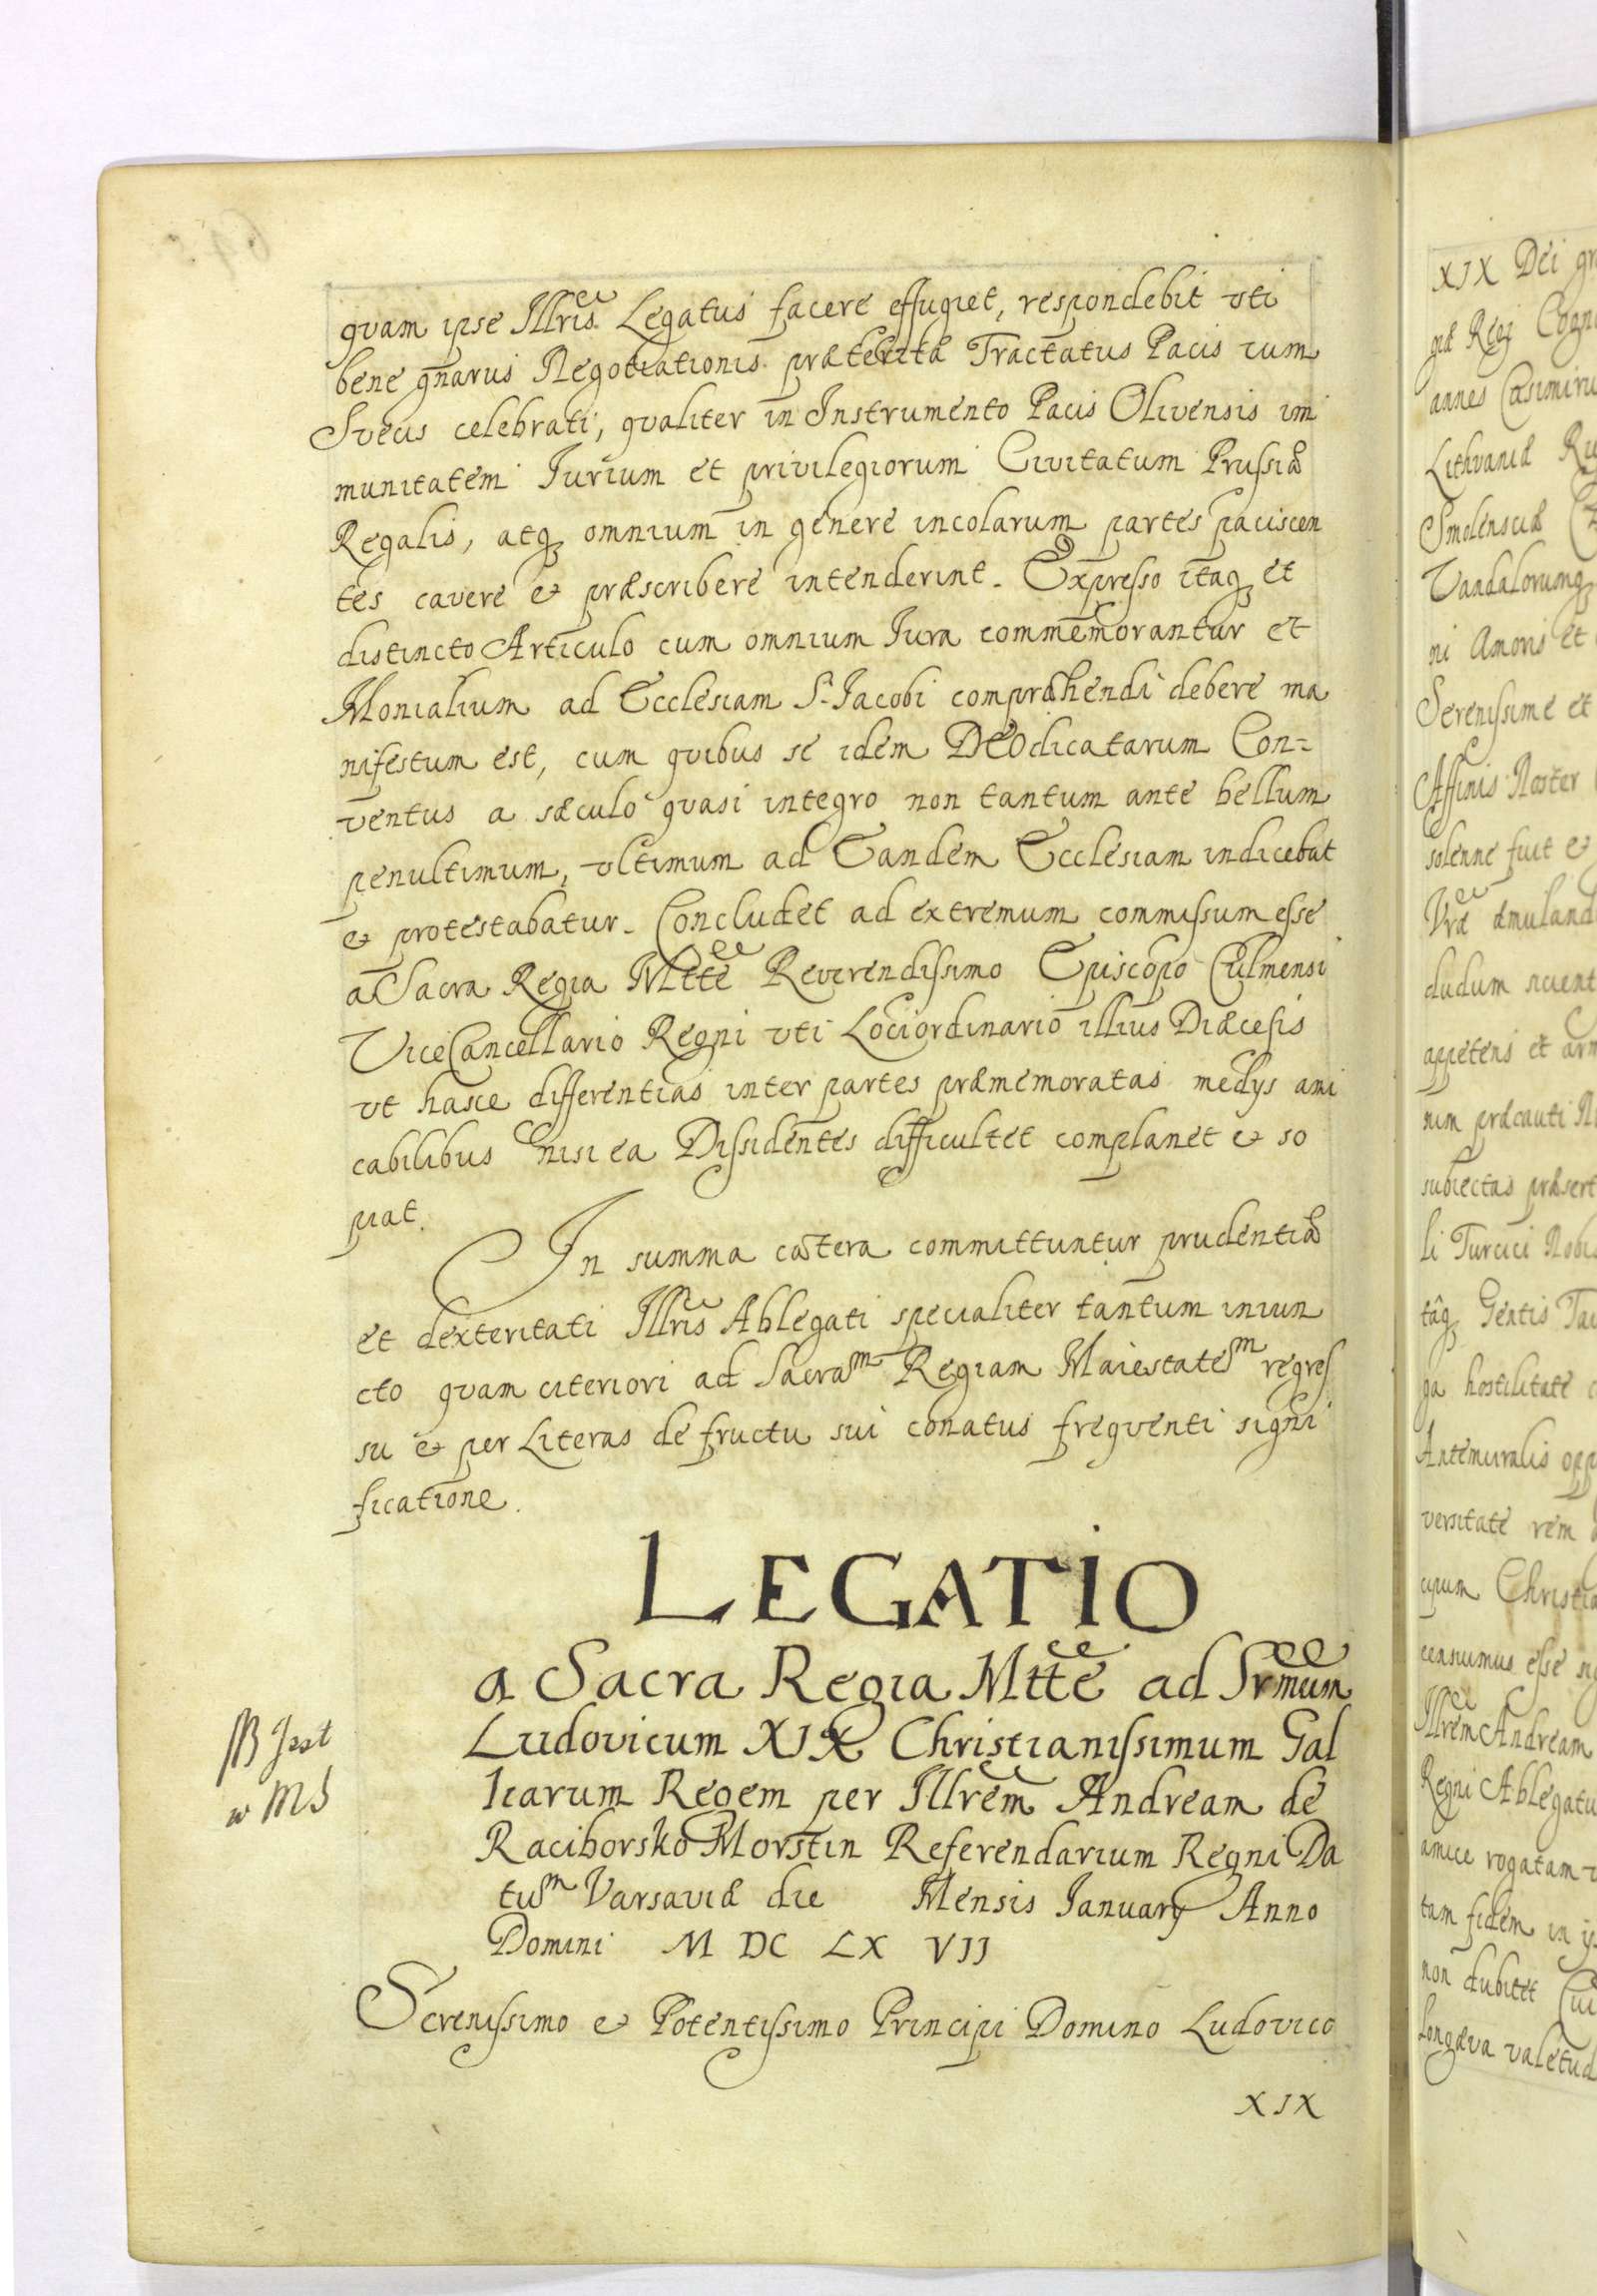 quam ipse Illris Legatus facere effugiet, respondebit uti
bene gnarus Negotiationis præteritæ Tractatus Pacis cum
Suecis celebrati, qualiter in Instrumento Pacis Olivensis im
munitatem Iurium et privilegiorum Civitatum Prussiæ
Regalis, atq omnium in genere incolarum partes paciscen
tes cavere & præscribere intenderint. Expresso itaq et
distincto Articulo cum omnium Iura commemorantur et
Monialium ad Ecclesiam S. Iacobi compræhendi debere ma
nifestum est, cum quibus se idem DEOdicatarum Con-
ventus a sæculo quasi integro non tantum ante bellum
penultimum, ultimum ad Eandem Ecclesiam indicebat
& protestabatur. Concludet ad extremum commissum esse
a Sacra Regia Mtte Reverendissimo Episcopo Culmensi
ViceCancellario Regni uti Lociordinario illius Diæcesis
ut hasce differentias inter partes præmemoratas medys ami
cabilibus nisi ea Dissidentes difficultet complanet & so
piat.
In summa cætera committuntur prudentiæ
et dexteritati Illris Ablegati specialiter tantum iniun
cto quam citeriori ad Sacram Regiam Maiestatem regres
su & per Literas de fructu sui conatus frequenti signi
ficatione.
LEGATIO
a Sacra Regia Mtte ad Srmum
Ludovicum XIX Christianissimum Gal
liarum Regem per Illrem Andream de
Raciborsko Morstin Referendarium Regni Da
tum Varsaviæ die Mensis Ianuary Anno
Domini M DC LX VII
NB Jest
w MS
Serenissimo & Potentissimo Principi Domino Ludovico
XIX
XIX Dei
Reg
annes Casimiru
Lithvaniæ
Smolensciæ
Vandalorumq
ni Amoris et
Serenissime et
Affinis Noster
solenne fuit &
Vræ æmuland
dudum
appetens et
præcauti
subiectas præsert
li Turcici Nobis
tâq Gentis
hostilitate
Antemuralis
versitate rem
Christia
censuimus esse
Illrem Andream
Regni Ablegatu
amice rogatam
tam fidem in
non dubitet
Longæva valetud